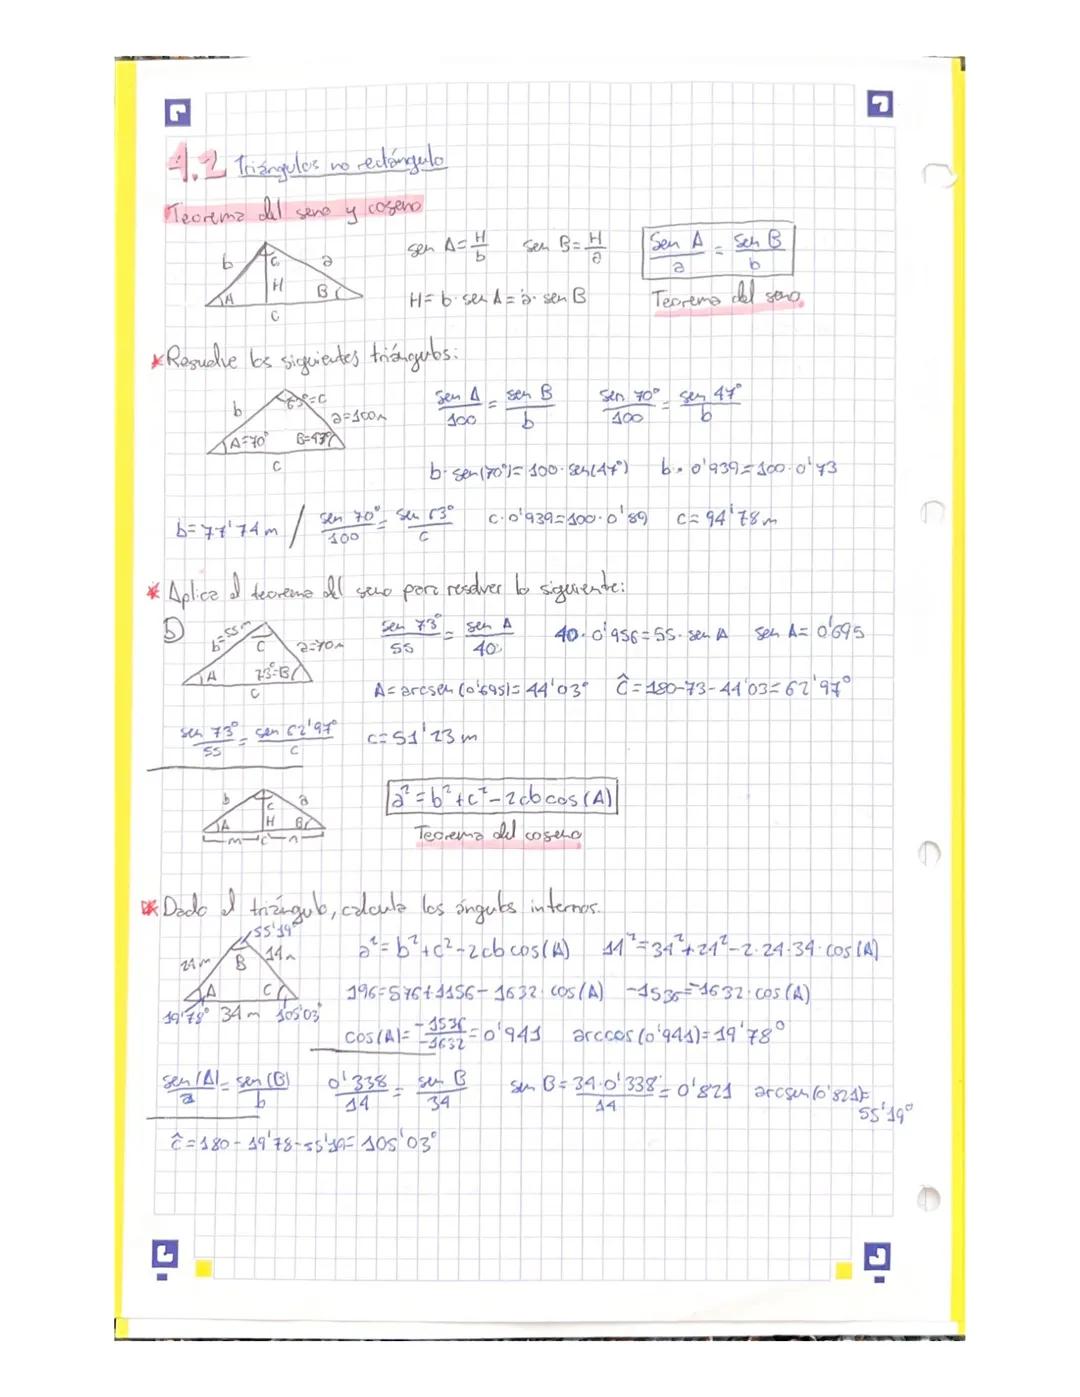 1.2 Triángulos no rectángulo
Teorema del seno y coseno
b C a H A B c
sen A = H/b sen B = H/a Sen A/a = Sen B/b
H = b · sen A = a · sen B Teorema del seno
* Resuelve los siguientes triángulos:
b 63° = C a = 100m A = 70° B = 47° c
Sen A/100 = sen B/b sen 70°/100 = sen 47°/b
b · sen(70°) = 100 · sen(47°) b · 0'939 = 100 · 0'73
b = 77'74 m / sen 70°/100 = sen 63°/c c · 0'939 = 100 · 0'89 c = 94'78 m
* Aplica el teorema del seno para resolver lo siguiente:
b) b = 55 m C a = 70m A 73° = B c
sen 73°/55 = sen A/40 40 · 0'956 = 55 · sen A sen A = 0'695
A = arcsen (0'695) = 44'03° Ĉ = 180 - 73 - 44'03 = 62'97°
sen 73°/55 = sen 62'97°/c c = 51'23 m
b C a A H B m c n
a² = b² + c² - 2cb cos (A)
Teorema del coseno
* Dado el triángulo, calcula los ángulos internos.
55'19° 24m B 14m A C 19'78° 34 m 105'03°
a² = b² + c² - 2cb cos(A) 14² = 34² + 24² - 2 · 24 · 34 · cos (A)
196 = 576 + 1156 - 1632 · cos (A) -1536 = -1632 · cos (A)
cos (A) = -1536/-1632 = 0'941 arccos (0'941) = 19'78°
sen (A)/a = sen (B)/b 0'338/14 = sen B/34 sen B = 34 · 0'338/14 = 0'821 arcsen (0'821) =
55'19°
Ĉ = 180 - 19'78 - 55'19 = 105'03°